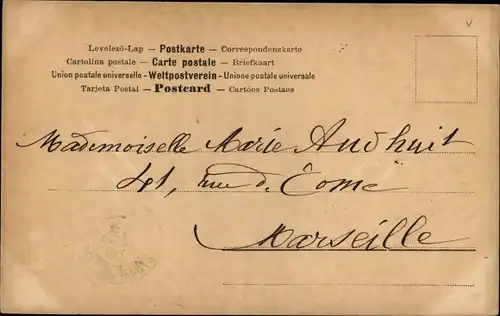 Levelező-Lap — Postkarte — Correspondenzkarte
Cartolina postale — Carte postale — Briefkaart
Union postale universelle - Weltpostverein - Unione postale universale
Tarjeta Postal — Postcard — Cartóes Postaes
Mademoiselle Marie Audhuit
41, rue d.
Marseille